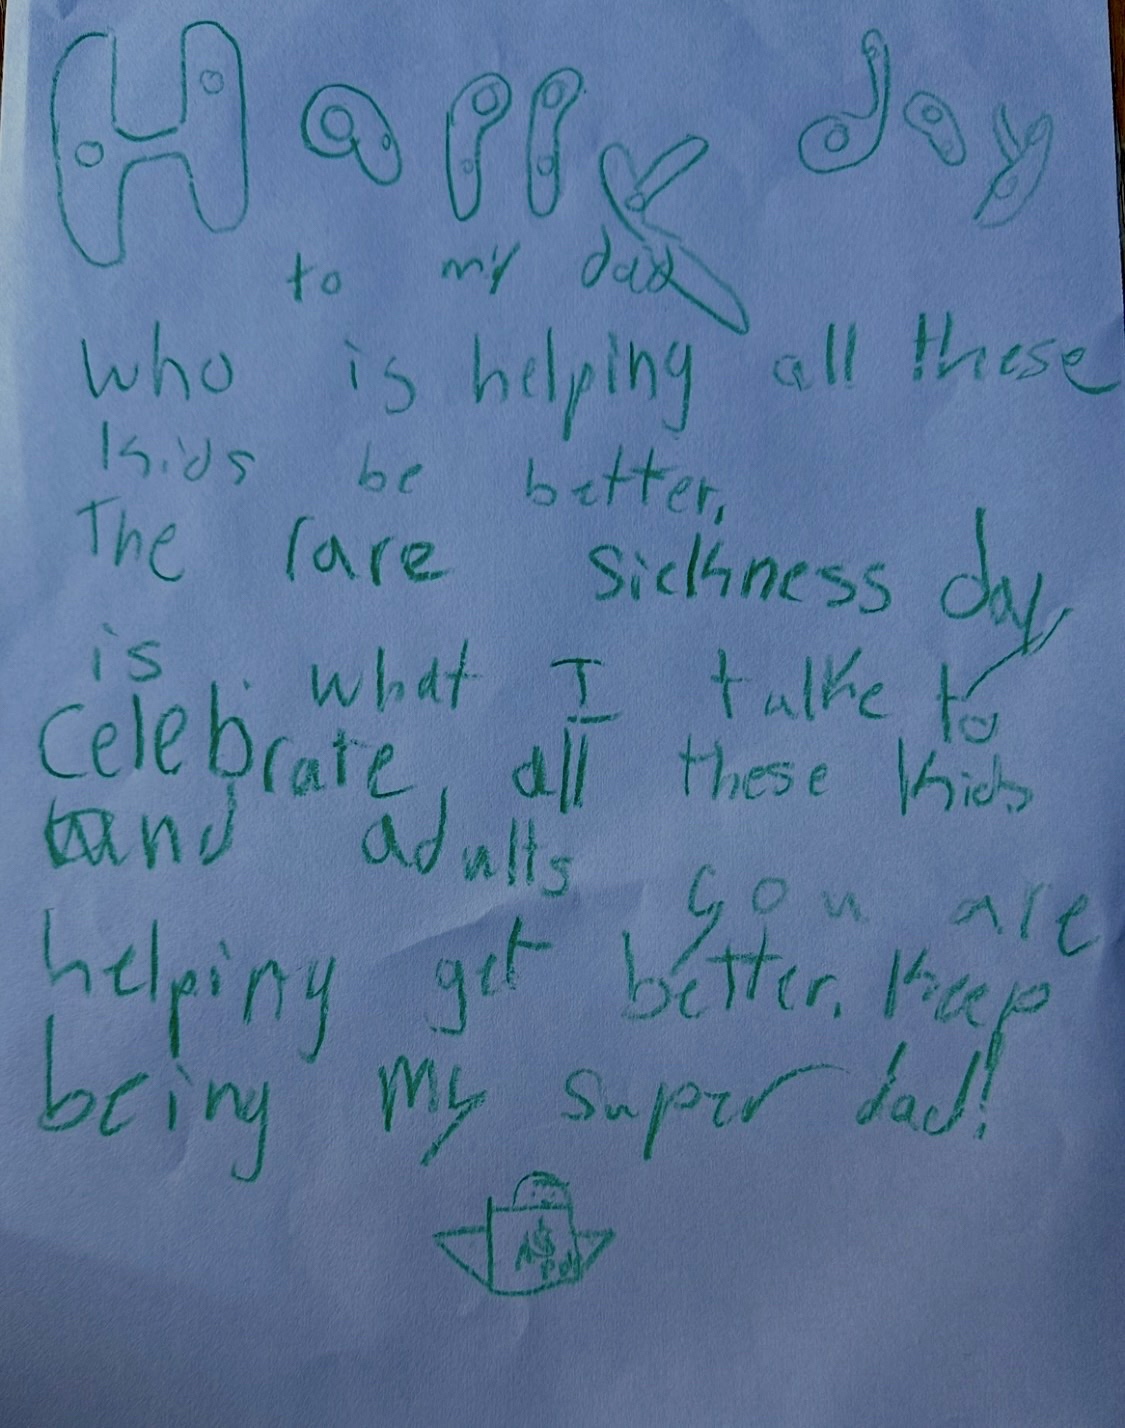 Happy day
to my dad
who is helping all these
kids be better.
The rare sickness day
is what I talke to
celebrate, all these kids
and adults you are
helping get better. Keep
being my super dad!